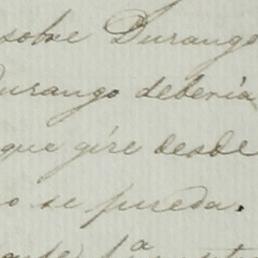 sobre Durango
Durango deberia
que gire desde
o se pueda.